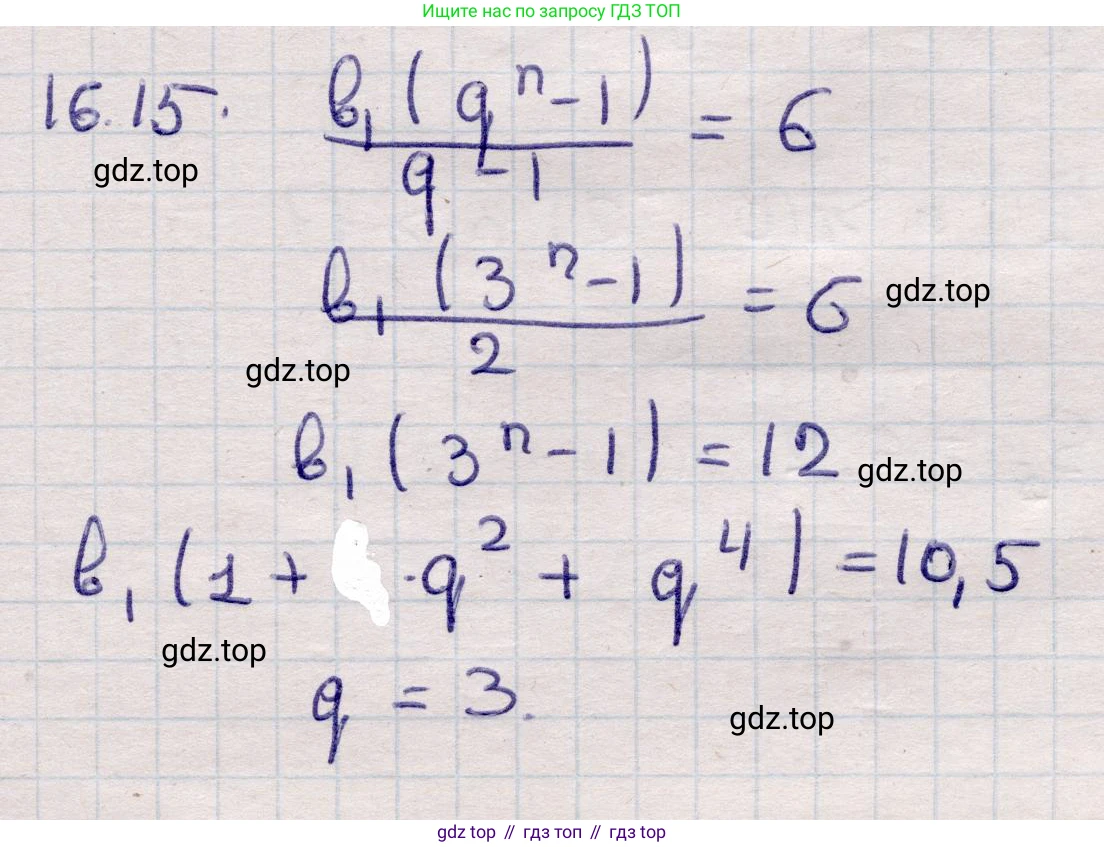 Ищите нас по запросу ГДЗ ТОП
16.15. b₁(qⁿ-1)/(q-1) = 6
gdz.top
b₁(3ⁿ-1)/2 = 6 gdz.top
gdz.top
b₁(3ⁿ-1)=12 gdz.top
b₁(1+ ·q²+ q⁴)=10,5
gdz.top
q = 3.
gdz.top
gdz top // гдз топ // гдз top